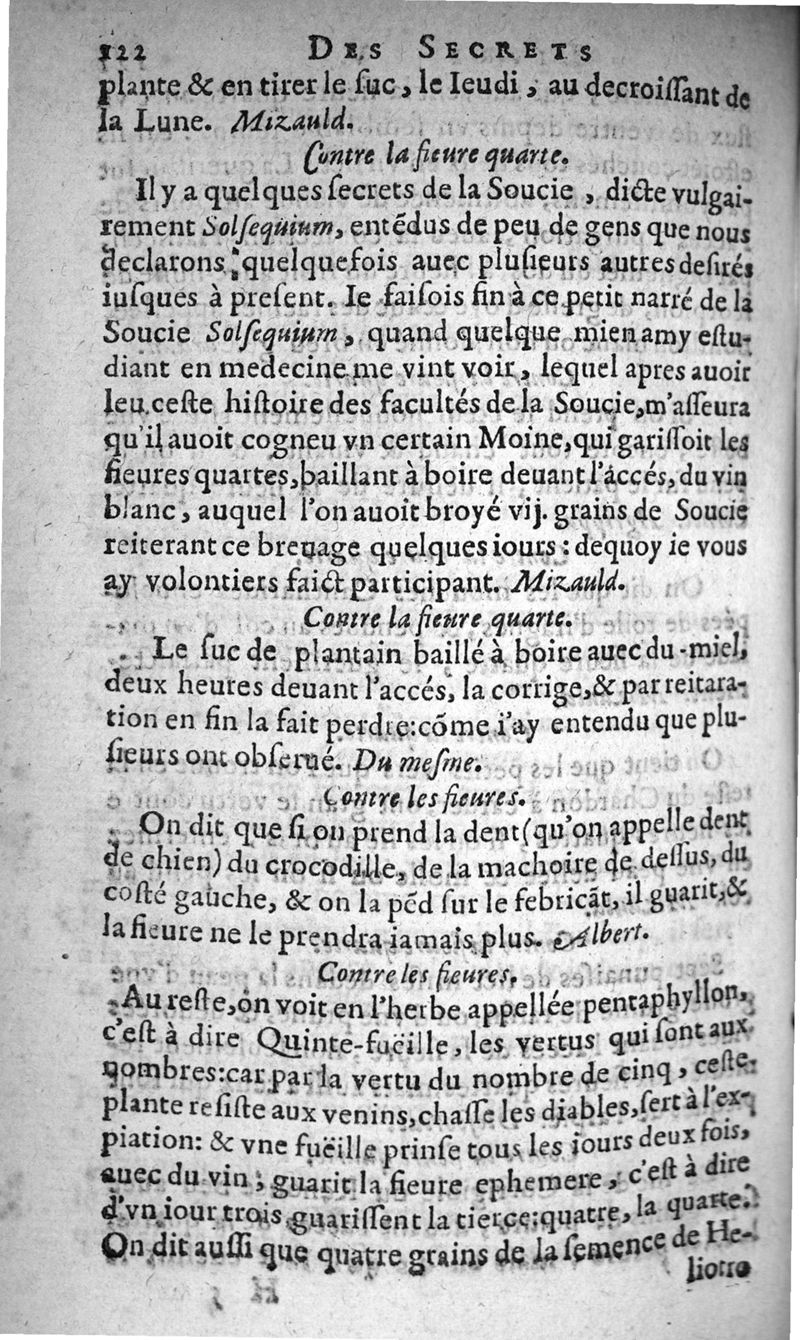 122 DES SECRETS
plante & en tirer le ſuc, le Ieudi, au decroiſſant de
la Lune. Mizauld.
Contre la fieure quarte.
Il y a quelques ſecrets de la Soucie, dicte vulgai-
rement Solſequium, entēdus de peu de gens que nous
declarons, quelquefois auec pluſieurs autres deſirés
iuſques à preſent. Ie faiſois fin à ce petit narré de la
Soucie Solſequium, quand quelque mien amy eſtu-
diant en medecine me vint voir, lequel apres auoir
leu ceſte hiſtoire des facultés de la Soucie, m'aſſeura
qu'il auoit cogneu vn certain Moine, qui gariſſoit les
fieures quartes, baillant à boire deuant l'accés, du vin
blanc, auquel l'on auoit broyé vij. grains de Soucie
reiterant ce breuage quelques iours : dequoy ie vous
ay volontiers faict participant. Mizauld.
Contre la fieure quarte.
Le ſuc de plantain baillé à boire auec du miel,
deux heures deuant l'accés, la corrige, & par reitara-
tion en fin la fait perdre: cōme i'ay entendu que plu-
ſieurs ont obſerué. Du meſme.
Contre les fieures.
On dit que ſi on prend la dent (qu'on appelle dent
de chien) du crocodille, de la machoire de deſſus, du
coſté gauche, & on la pēd ſur le febricāt, il guarit, &
la fieure ne le prendra iamais plus. Albert.
Contre les fieures.
Au reſte, on voit en l'herbe appellée pentaphyllon,
c'eſt à dire Quinte-fuëille, les vertus qui ſont aux
nombres: car par la vertu du nombre de cinq, ceſte
plante reſiſte aux venins, chaſſe les diables, ſert à l'ex-
piation: & vne fuëille prinſe tous les iours deux fois,
auec du vin, guarit la fieure ephemere, c'eſt à dire
d'vn iour trois guariſſent la tierce: quatre, la quarte.
On dit auſſi que quatre grains de la ſemence de He-
liotro